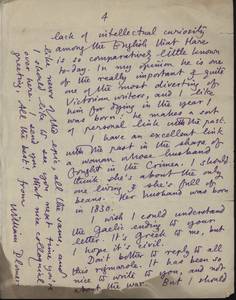 4
lack of intellectual curiosity
among the English that Hare
is so comparatively little known
to-day. In my opinion he is one
of the really important & quite
one of the most diverting of
Victorian writers, and I like
him for dying in the year I
was born: he makes a sort
of personal link with the past.
I have an excellent link
with the past in the shape of
a woman whose husband
fought in the Crimea. I should
think she's about the only
one living & she's full of
beans. Her husband was born
in 1830.
I wish I could understand
the Gaelic ending to your
letter. It's Greek to me, but
I hope it's civil.
Don't bother to reply to all
this rigmarole. It has been so
nice to write to you, and not
about the war. But I should
like news of the epic all the same, and
I should like to you next time you're
over here. I send you that nice colloquial
greeting: All the best! from
William Plomer